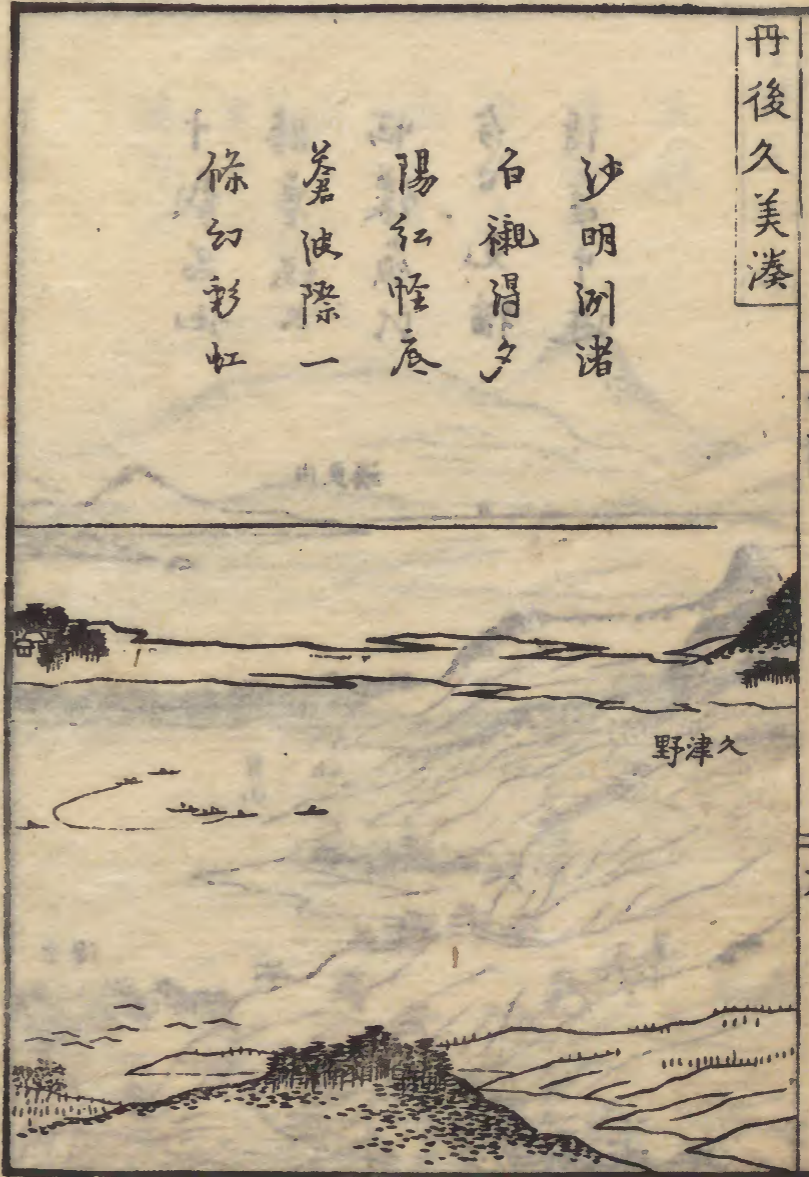 丹後久美湊
沙明洲渚
白襯得夕
陽紅怪底
蒼波際一
條幻彩虹
久津野